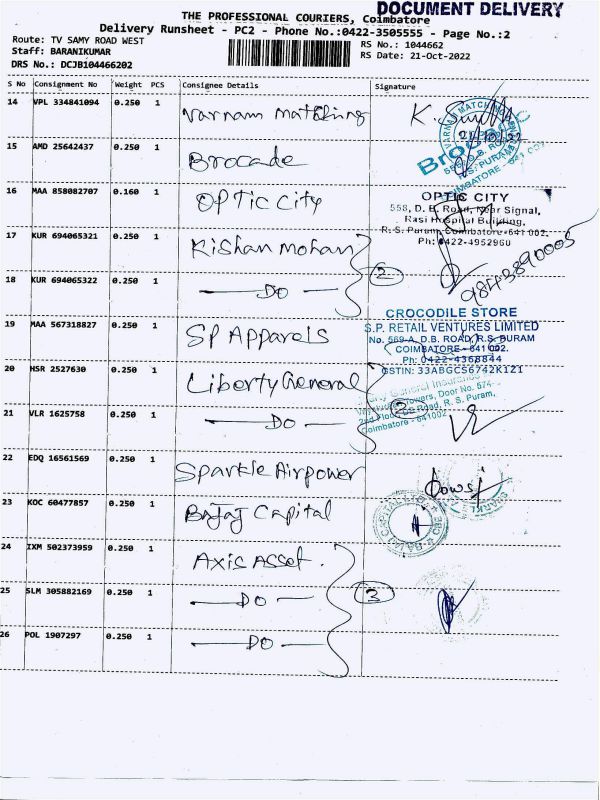 DOCUMENT DELIVERY
THE PROFESSIONAL COURIERS, Coimbatore
Delivery Runsheet - PC2 - Phone No.:0422-3505555 - Page No.:2
Route: TV SAMY ROAD WEST
RS No.: 1044662
Staff: BARANIKUMAR
RS Date: 21-Oct-2022
DRS No.: DCJB104466202
S No Consignment No Weight PCS Consignee Details Signature
14 VPL 334841094 0.250 1 Varnam Matching
21/10/22
15 AMD 25642437 0.250 1 Brocade
16 MAA 858082707 0.160 1 OPTIC CITY
OPTIC CITY
558, D. B. Road, Near Signal,
Rasi Hospital Building,
R. S. Puram, Coimbatore-641 002.
Ph: 0422-4952960
17 KUR 694065321 0.250 1 Kishan Mohan
2
9843890005
18 KUR 694065322 0.250 1 DO
CROCODILE STORE
S.P. RETAIL VENTURES LIMITED
No. 569-A, D.B. ROAD, R.S. PURAM
COIMBATORE - 641 002.
Ph: 0422-4368844
GSTIN: 33ABGCS6742K1Z1
19 MAA 567318827 0.250 1 SP Apparels
20 HSR 2527630 0.250 1 Liberty General
2
General Insurance
Towers, Door No. 574
2nd Floor, Road, R. S. Puram,
Coimbatore - 641002
21 VLR 1625758 0.250 1 DO
22 EDQ 16561569 0.250 1 Sparkle Airpower
23 KOC 60477857 0.250 1 Bajaj Capital
24 IXM 502373959 0.250 1 Axis Asset.
25 SLM 305882169 0.250 1 DO
3
26 POL 1907297 0.250 1 DO